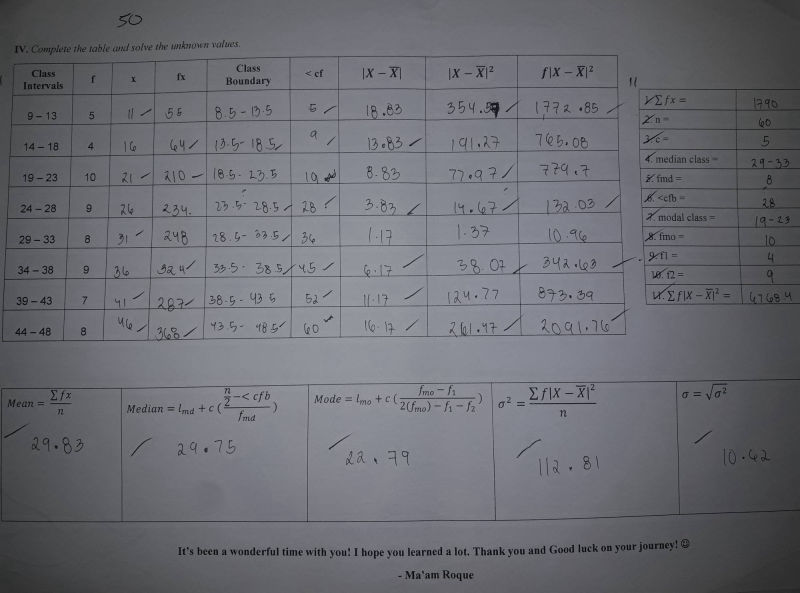 50
IV. Complete the table and solve the unknown values.
Class Intervals f x fx Class Boundary < cf |X − X̅| |X − X̅|² f|X − X̅|²
9 – 13 5 11 55 8.5 - 13.5 5 18.83 354.57 1772.85
14 – 18 4 16 64 13.5 - 18.5 9 13.83 191.27 765.08
19 – 23 10 21 210 18.5 - 23.5 19 8.83 77.97 779.7
24 – 28 9 26 234 23.5 - 28.5 28 3.83 14.67 132.03
29 – 33 8 31 248 28.5 - 33.5 36 1.17 1.37 10.96
34 – 38 9 36 324 33.5 - 38.5 45 6.17 38.07 342.63
39 – 43 7 41 287 38.5 - 43.5 52 11.17 124.77 873.39
44 – 48 8 46 368 43.5 - 48.5 60 16.17 261.47 2091.76
11
1. Σfx = 1790
2. n = 60
3. c = 5
4. median class = 29-33
5. fmd = 8
6. <cfb = 28
7. modal class = 19-23
8. fmo = 10
9. f1 = 4
10. f2 = 9
11. Σf|X − X̅|² = 6768.4
Mean = Σfx / n
29.83
Median = lmd + c ( (n/2 − < cfb) / fmd )
29.75
Mode = lmo + c ( (fmo − f1) / (2(fmo) − f1 − f2) )
22.79
σ² = Σf|X − X̅|² / n
112.81
σ = √σ²
10.62
It's been a wonderful time with you! I hope you learned a lot. Thank you and Good luck on your journey! ☺
- Ma'am Roque